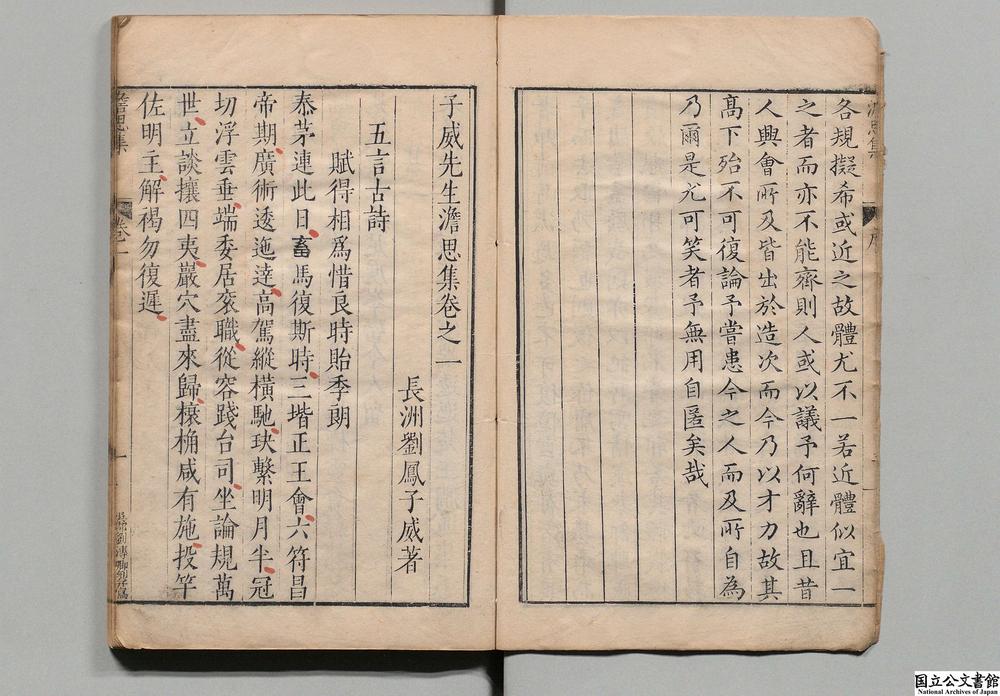 各規擬希或近之故體尤不一若近體似宜一
之者而亦不能齊則人或以議予何辭也且昔
人興會所及皆出於造次而今乃以才力故其
高下殆不可復論予嘗患今之人而及所自為
乃爾是尤可笑者予無用自匿矣哉
子威先生澹思集卷之一
長洲劉鳳子威著
五言古詩
賦得相爲惜良時貽季朗
泰茅連此日畜馬復斯時三堦正王會六符昌
帝期廣術逶迤達高駕縱橫馳玦繫明月半冠
切浮雲垂端委居衮職從容踐台司坐論規萬
世立談攘四夷巖穴盡來歸榱桷咸有施投竿
佐明主解褐勿復遲
澹思集
卷一
一
国立公文書館
National Archives of Japan